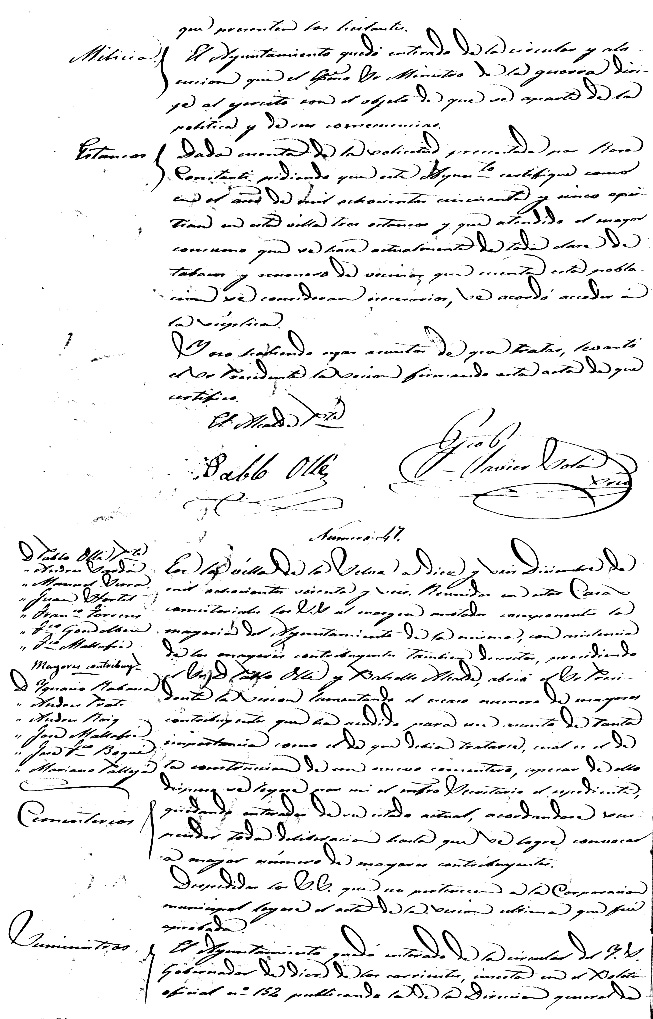 que presenten los licitantes.
Milicia El Ayuntamiento quedó enterado de la circular y alo-
cucion que el Exmo Sr Ministro de la guerra diri-
ge al ejercito con el objeto de que se aparte de la
politica y de sus consecuencias.
Estancos Dada cuenta de la solicitud presentada por
pidiendo que este Ayunto certifique como
en el año de mil ochocientos cincuenta y cinco exis-
tian en esta villa tres estancos y que atendido el mayor
consumo que se hace actualmente de toda clase de
tabacos y numero de vecinos que cuenta esta pobla-
cion se consideran necesarios, se acordó acceder á
la súplica.
Y no habiendo mas asuntos de que tratar, levantó
el Sr Presidente la sesion firmando esta acta de que
certifico.
El Alcalde Pte
Pablo Olle
Javier Sola
Numero 47.
D Pablo Olle Pte
" Andres
" Manuel Serra
" Juan
" Franco
" Jo
" Jo Mallafré
Mayores contribuyes
D Ignacio
" Andres
" Andres Roig
" Jose Mallafré
" Jose
" Mariano
En la villa de la Selva a diez y seis Diciembre de
mil ochocientos sesenta y seis. Reunidos en esta Casa
consistorial los SS al margen anotados componentes la
mayoría del Ayuntamiento de la misma, con asistencia
de los mayores contribuyentes tambien descritos, presidiendo
el Sr D Pablo Olle y Alcalde, abrió el Sr Presi-
dente la sesion lamentando el escaso numero de mayores
contribuyentes que ha acudido para un asunto de tanta
importancia como el de que debia tratarse, cual es el de
la construccion de un nuevo cementerio, apesar de ello
dispuso se leyera por mi el infro Secretario el expediente,
Cementerios quedando enterados de su estado actual, acordandose sus-
pender toda deliberacion hasta que se logre convocar
á mayor número de mayores contribuyentes.
Despedidos los SS. que no pertenecen a la Corporacion
municipal leyose el acta de la sesion ultima que fué
aprobada.
Suministros El Ayuntamiento quedó enterado de la circular del
Gobernador de diez de los corrientes, inserta en el Boletin
oficial nº 152 publicando la de la Direccion general de